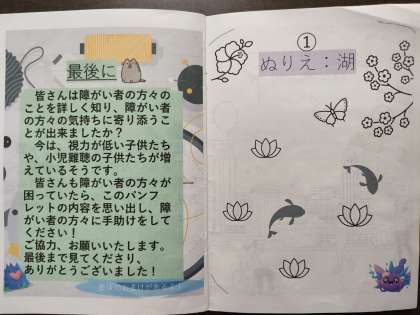 最後に
皆さんは障がい者の方々の
ことを詳しく知り、障がい者
の方々の気持ちに寄り添うこ
とが出来ましたか？
今は、視力が低い子供たち
や、小児難聴の子供たちが増
えているそうです。
皆さんも障がい者の方々が
困っていたら、このパンフ
レットの内容を思い出し、障
がい者の方々に手助けをして
ください！
ご協力、お願いいたします。
最後まで見てくださり、
ありがとうございました！
①
ぬりえ：湖